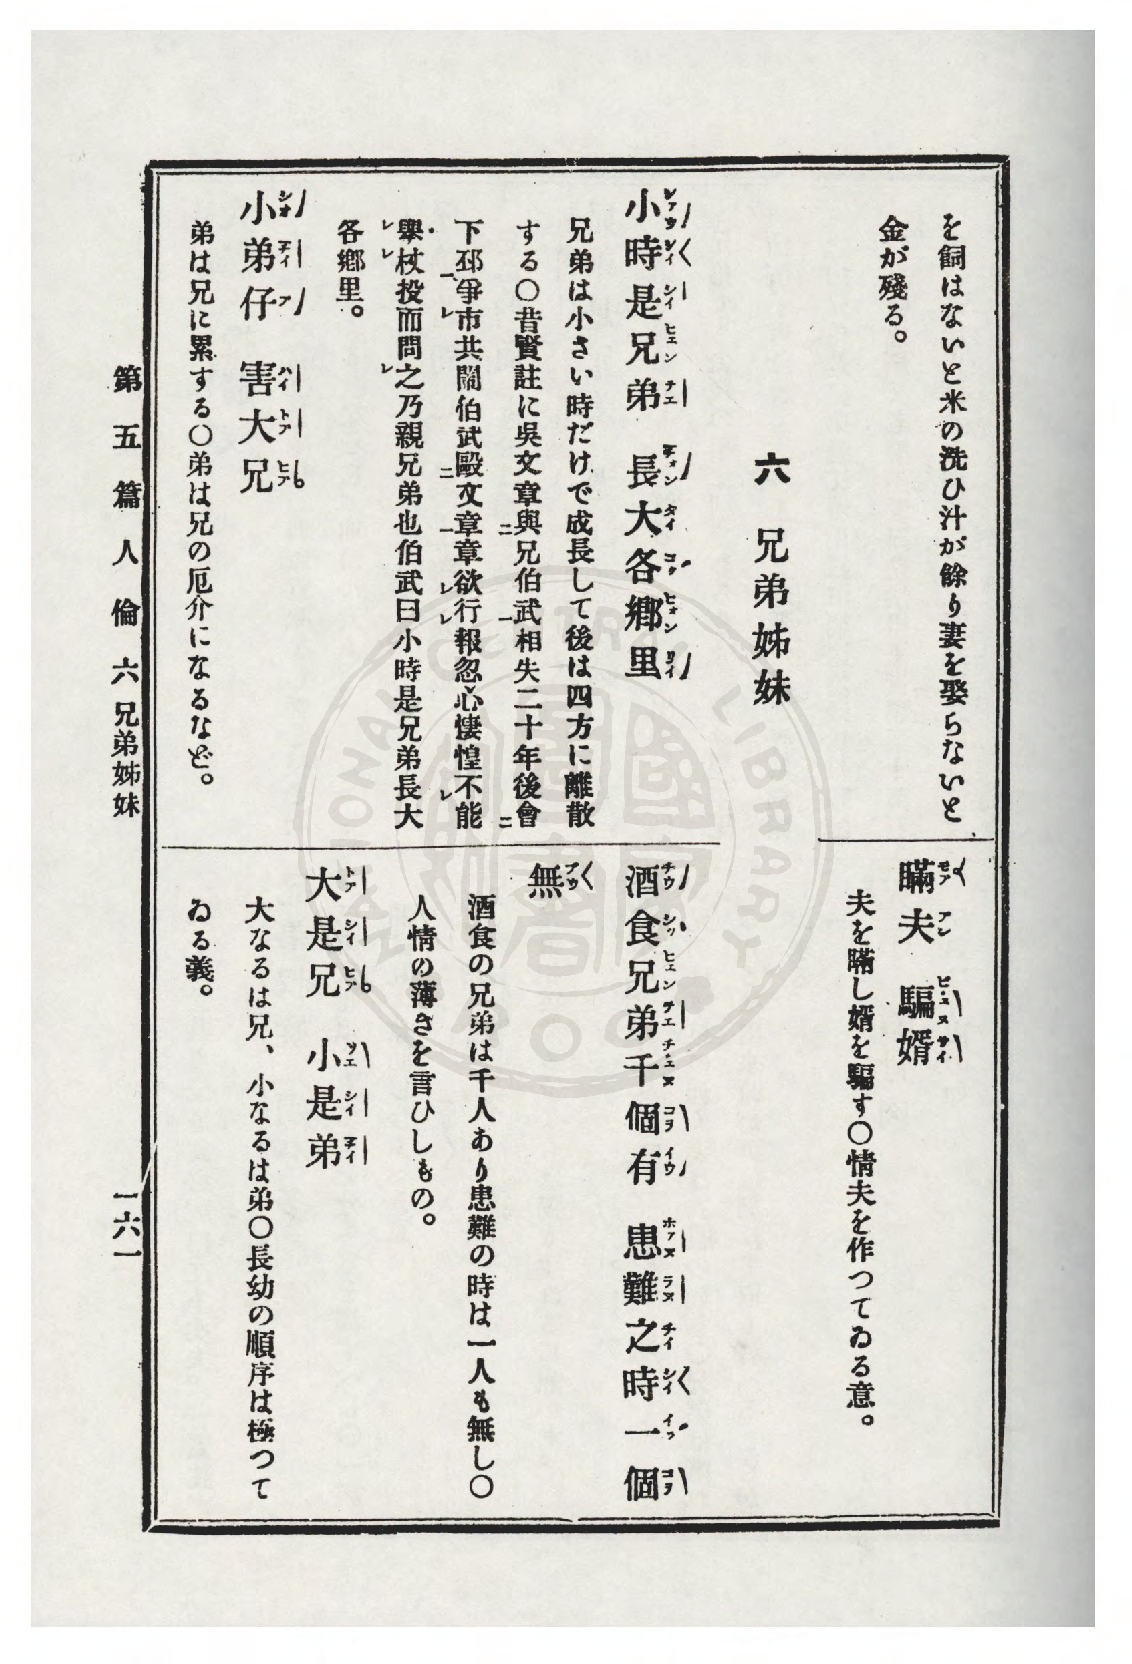 を飼はないと米の洗ひ汁が餘り妻を娶らないと
金が殘る。
六 兄弟姊妹
小時是兄弟 長大各鄉里
兄弟は小さい時だけで成長して後は四方に離散
する〇昔賢註に吳文章與兄伯武相失二十年後會
下邳爭市共鬪伯武毆文章章欲行報忽心悽惶不能
舉杖投而問之乃親兄弟也伯武曰小時是兄弟長大
各鄉里。
小弟仔 害大兄
弟は兄に累する〇弟は兄の厄介になるなど。
瞞夫 騙婿
夫を瞞し婿を騙す〇情夫を作つてゐる意。
酒食兄弟千個有 患難之時一個
無
酒食の兄弟は千人あり患難の時は一人も無し〇
人情の薄さを言ひしもの。
大是兄 小是弟
大なるは兄、小なるは弟〇長幼の順序は極つて
ゐる義。
第五篇 人倫 六 兄弟姊妹
一六一
NATIONAL CENTRAL LIBRARY
ROC